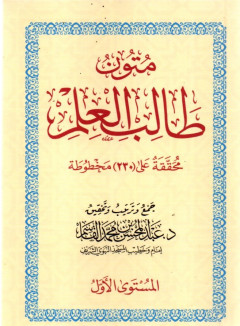 متون
طالب العلم
محققة على (٢٣٠) مخطوطة
جمع وترتيب وتحقيق
د. عبد المحسن بن محمد القاسم
إمام وخطيب المسجد النبوي الشريف
المستوى الأول